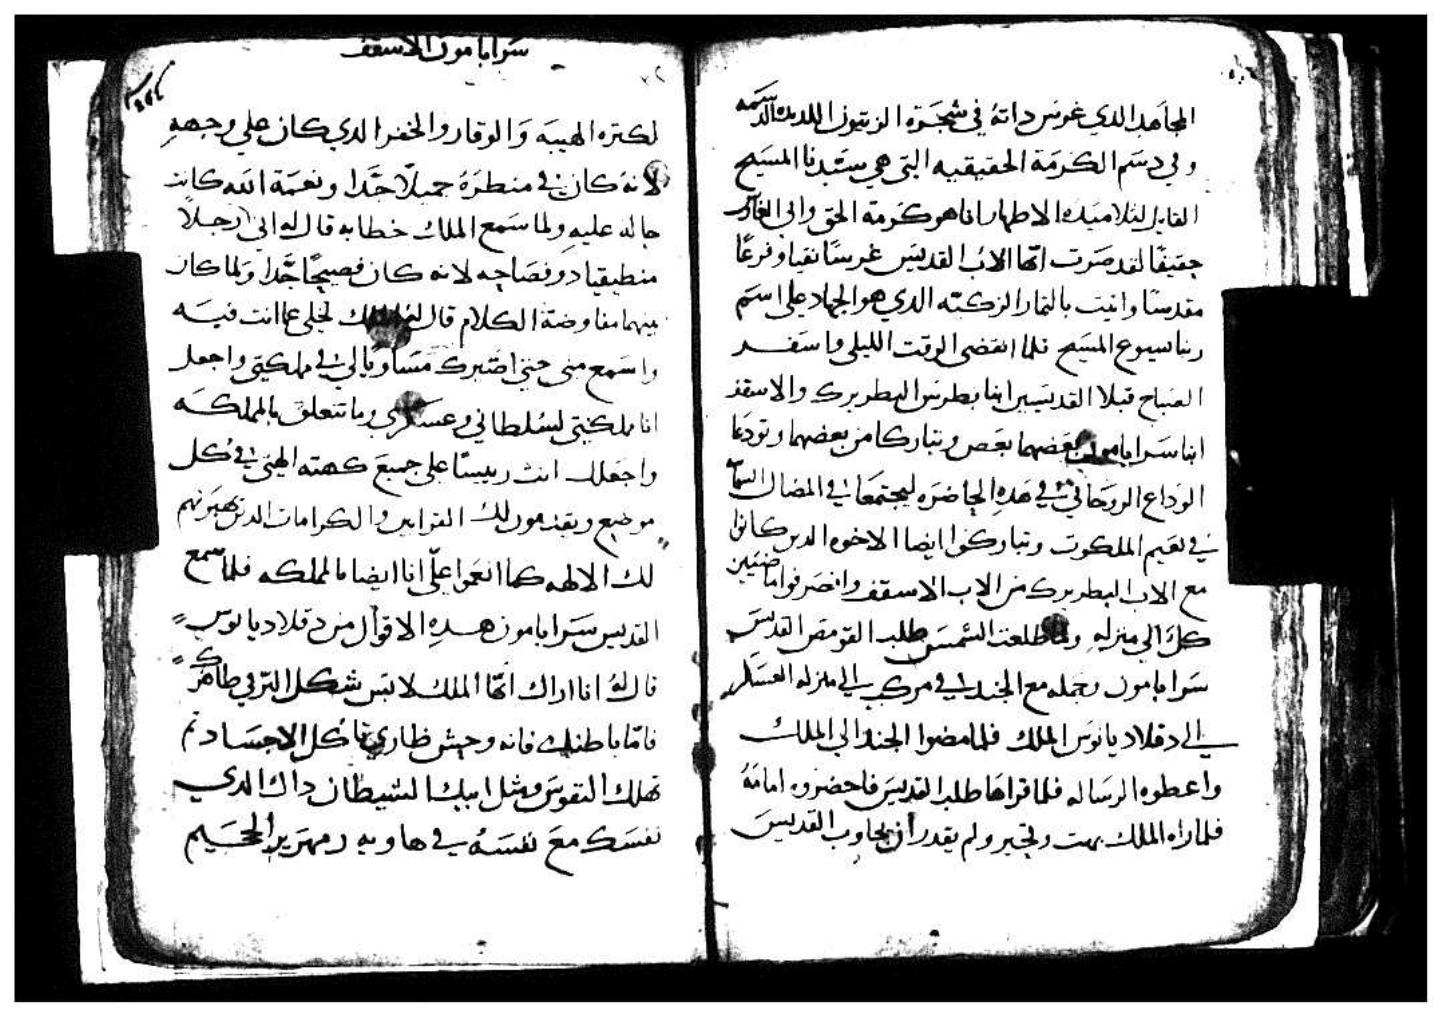 المجاهد الدي غرس داته في شجرة الزيتون اللديده الدسمه
وفي دسم الكرمة الحقيقيه التي هي سيدنا المسيح
القايل لتلاميده الاطهار انا هو كرمة الحق وابي الغارس
حقيقًا لقد صرت ايها الاب القديس غرسًا نقيا وفرعًا
مقدسًا واتيت بالتمار الزكيه الدي هو الجهاد على اسم
ربنا يسوع المسيح فلما انقضى الوقت الليلي واسفر
الصباح قبلا القديسين انبا بطرس البطريرك والاسقف
انبا سرابامون بعضهما بعض وتباركا من بعضهما وتودعا
الوداع الروحاني في هده الحاضره ليجتمعا في
في نعيم الملكوت وتباركوا ايضا الاخوه الدين كانوا
مع الاب البطريرك من الاب الاسقف وانصرفوا ماضيين
كل الي منزله ولما طلعت الشمس طلب القومص القديس
سرابامون وحمله مع الجند في مركب الي منزله العسكر
الى دقلاديانوس الملك فلما مضوا الجند الي الملك
واعطوه الرساله فلما قراها طلب القديس فاحضروه امامه
فلما راه الملك بهت وتحير ولم يقدر ان يجاوب القديس
سرابامون الاسقف
لكتره الهيبه والوقار والخفر الدي كان علي وجهه
لانه كان في منظره جميلًا جدا ونعمة الله كانت
حاله عليه ولما سمع الملك خطابه قال له اني ارجلًا
منطيقيا دو فصاحه لانه كان فصيحًا جدا ولما كان
بينهما مفاوضة الكلام قال له الملك تخلي عما انت فيه
واسمع مني حتي اصيرك مساويًا لي في مملكتي واجعل
انا ملكيتي لسلطاني وعسكري وما تتعلق بالمملكه
واجعلك انت رييسًا على جميع كهنة الهتي في كل
موضع ويقدمون لك القرابين والكرامات الدين
لك الالهه كما انعموا علي انا ايضا بالمملكه فلما سمع
القديس سرابامون هده الاقوال من دقلاديانوس
قال له انا اراك ايها الملك لابس شكل البر في ظاهرك
فاما باطنك فانه وحش ضاري تاكل الاجساد تم
تهلك النفوس ومثل ابيك الشيطان داك الدي
نفسك مع نفسه في هاويه زمهرير الجحيم